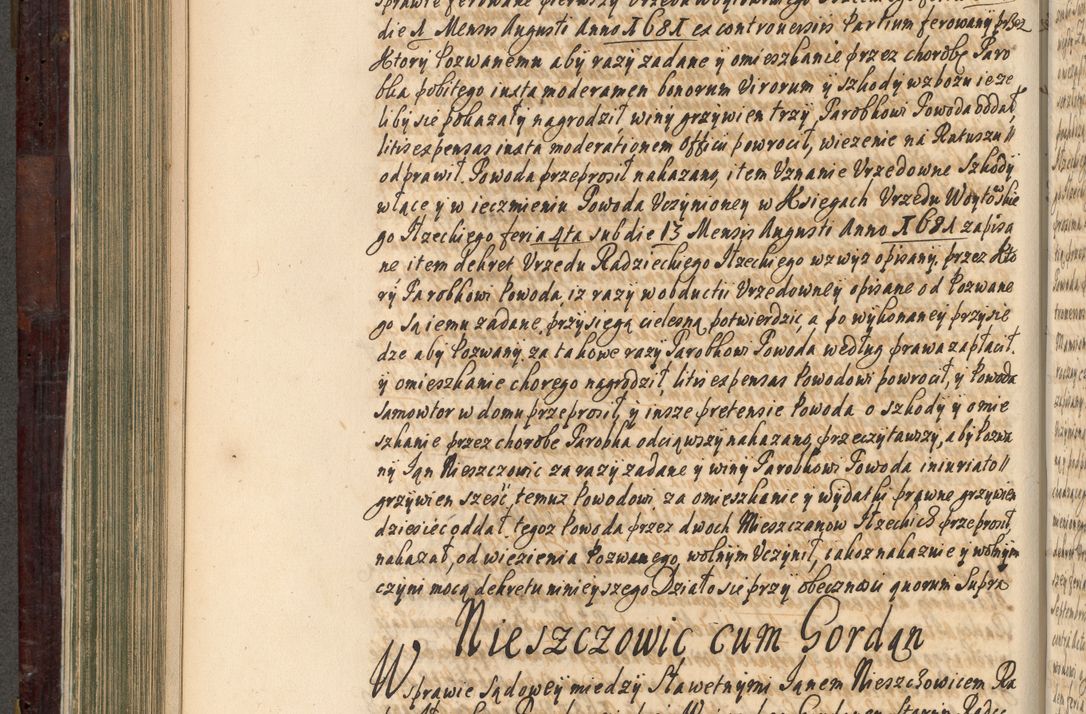 sprawie ferowane pierwszy Urzędu Woytowskiego Iłzeckiego feria
die 1 Mensis Augusti Anno 1681 ex controversis Partium ferowany przez
Ktory Pozwanemu aby razy zadane y omieszkanie przez chorobę Paro
bka pobitego iuxta moderamen bonorum Virorum y szkody w zbożu ieże
liby się pokazały nagrodził, winy grzywien trzy Parobkowi Powoda oddał,
litis expensas iuxta moderationem Officii powrocił, więzenie na Ratuszu
odprawił. Powoda przeprosił nakazano, item Uznanie Urzedowne Szkody
w łące y w ięczmieniu Powoda Uczynioney w Księgach Urzedu Woytowskie
go Iłzeckiego feria 4ta sub die 13 Mensis Augusti Anno 1681 zapisa
ne item dekret Urzedu Radzieckiego Iłzeckiego wzwyż opisany, przez Kto
ry Parobkowi Powoda, iż razy w obductii Urzedowney opisane od Pozwane
go są iemu zadane, przysięgą cielesną potwierdzic, a po wykonaney przysię
dze aby Pozwany za takowe razy Parobkowi Powoda według prawa zapłacił.
y omieszkanie chorego nagrodził, litis expensas Powodowi powrocił, y Powoda
samowtor w domu przeprosił, y insze pretensie Powoda o szkody y omie
szkanie przez chorobę Parobka odciąwszy nakazano, przeczytawszy, aby Pozwa
ny Jan Nieszczowic za razy zadane y winy Parobkowi Powoda iniuriato
grzywien sześć, temuz Powodowi za omieszkanie y wydatki prawne grzywien
dziesięc oddał, tegoż Powoda przez dwoch Mieszczanow Iłzeckich przeprosił,
nakazał, od więzienia Pozwanego wolnym Uczynił, iakoż nakazuie y wolnym
czyni mocą dekretu ninieyszego Działo się przy obecznosci quorum Supra
Nieszczowic cum Gordan
W sprawie sądowey między Sławetnymi Janem Nieszczowicem Ra